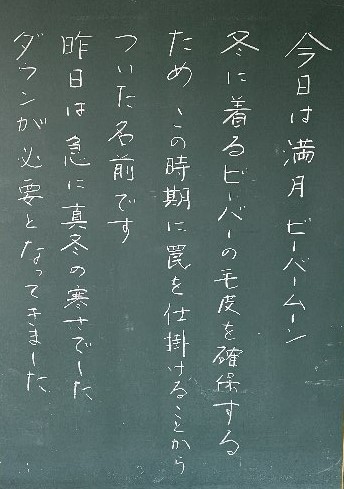 今日は満月 ビーバームーン
冬に着るビーバーの毛皮を確保する
ため、この時期に罠を仕掛けることから
ついた名前です
昨日は急に真冬の寒さでした
ダウンが必要となってきました